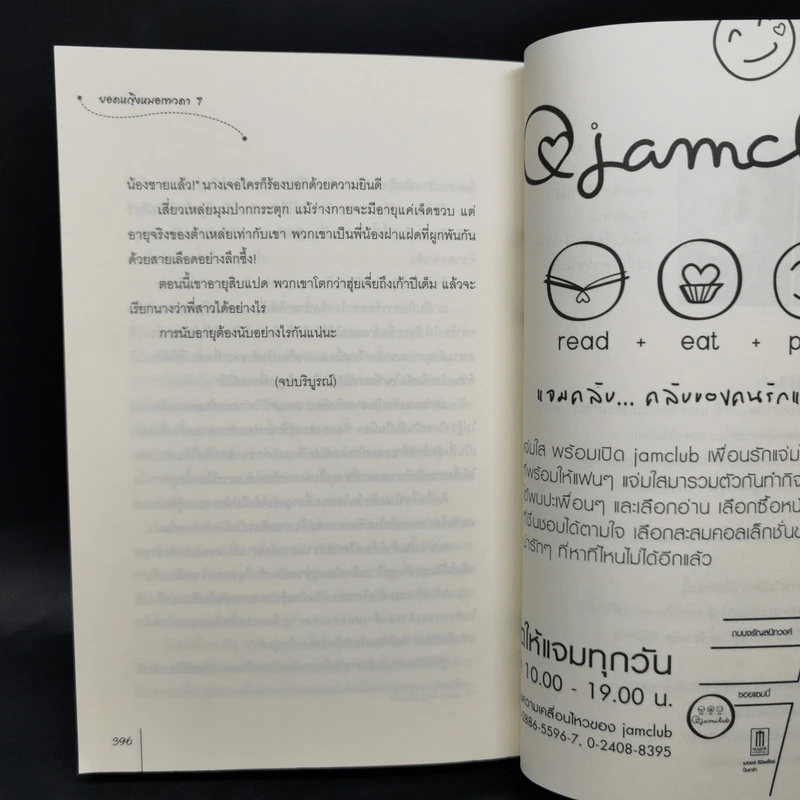 ยอดหญิงหมอเทวดา 7
น้องชายแล้ว!" นางเจอใครก็ร้องบอกด้วยความยินดี
เสี่ยวเหล่ยมุมปากกระตุก แม้ร่างกายจะมีอายุแค่เจ็ดขวบ แต่
อายุจริงของต้าเหล่ยเท่ากับเขา พวกเขาเป็นพี่น้องฝาแฝดที่ผูกพันกัน
ด้วยสายเลือดอย่างลึกซึ้ง!
ตอนนี้เขาอายุสิบแปด พวกเขาโตกว่าฮุ่ยเจี่ยถึงเก้าปีเต็ม แล้วจะ
เรียกนางว่าพี่สาวได้อย่างไร
การนับอายุต้องนับอย่างไรกันแน่นะ
(จบบริบูรณ์)
396
jamcl
read + eat + p
แจมคลับ... คลับของคนรักแ
แจ่มใส พร้อมเปิด jamclub เพื่อนรักแจ่มใ
ที่พร้อมให้แฟนๆ แจ่มใสมารวมตัวกันทำกิจ
ได้พบปะเพื่อนๆ และเลือกอ่าน เลือกซื้อหนั
ที่ชื่นชอบได้ตามใจ เลือกสะสมคอลเล็กชั่นข
น่ารักๆ ที่หาที่ไหนไม่ได้อีกแล้ว
ให้แจมทุกวัน
10.00 - 19.00 น.
ความเคลื่อนไหวของ jamclub
-2886-5596-7, 0-2408-8395
ถนนจรัญสนิทวงศ์
ซอยแซมมี่
jamclub